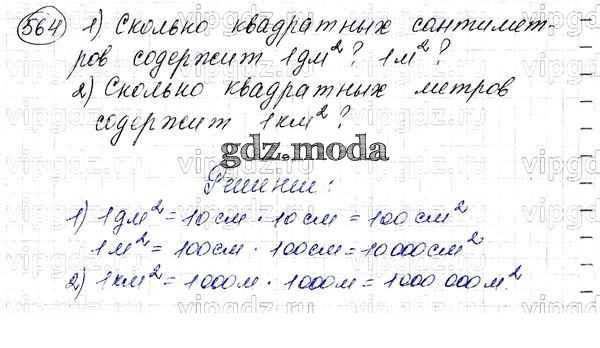 564 1) Сколько квадратных сантимет-
ров содержит 1 дм²? 1 м²?
2) Сколько квадратных метров
содержит 1 км²?
gdz.moda
Решение:
1) 1 дм² = 10 см · 10 см = 100 см²
1 м² = 100 см · 100 см = 10 000 см²
2) 1 км² = 1000 м · 1000 м = 1000 000 м²